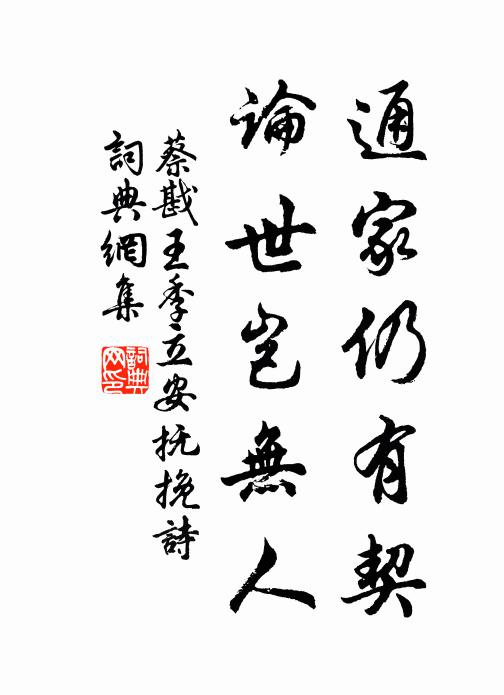 通家仍有契
論世豈無人
蔡戡王季立安抚挽詩
詞典網集
詞典网印